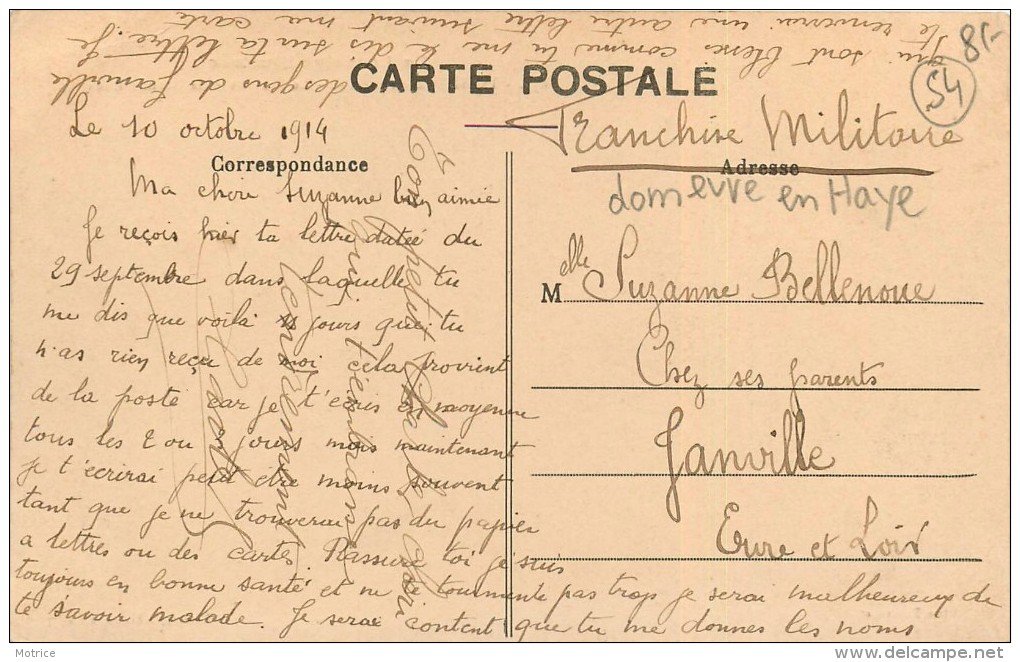 CARTE POSTALE
Le 10 octobre 1914
Correspondance
Ma chère Suzanne bien aimée
Je reçois hier ta lettre datée du
29 septembre dans laquelle tu
me dis que voilà jours que tu
n'as rien reçu de moi cela provient
de la poste car je t'écris en moyenne
tous les 2 ou jours mais maintenant
je t'écrirai peut être moins souvent
tant que je ne trouverai pas du papier
a lettres ou des cartes Rassure toi je suis
toujours en bonne santé et ne te tourmente pas trop je serai malheureux de
te savoir malade. Je serai content que tu me donnes les noms
des gens de Janville
qui sont blessés comme tu me le dis sur ta lettre. Je
te renverrai une autre lettre suivant ma carte
Ton petit
qui t'embrasse
tendrement
Franchise Militaire
Adresse
domevre en Haye
54
8,-
Melle Suzanne Bellenoue
Chez ses parents
Janville
Eure et Loir
Motrice
www.delcampe.net